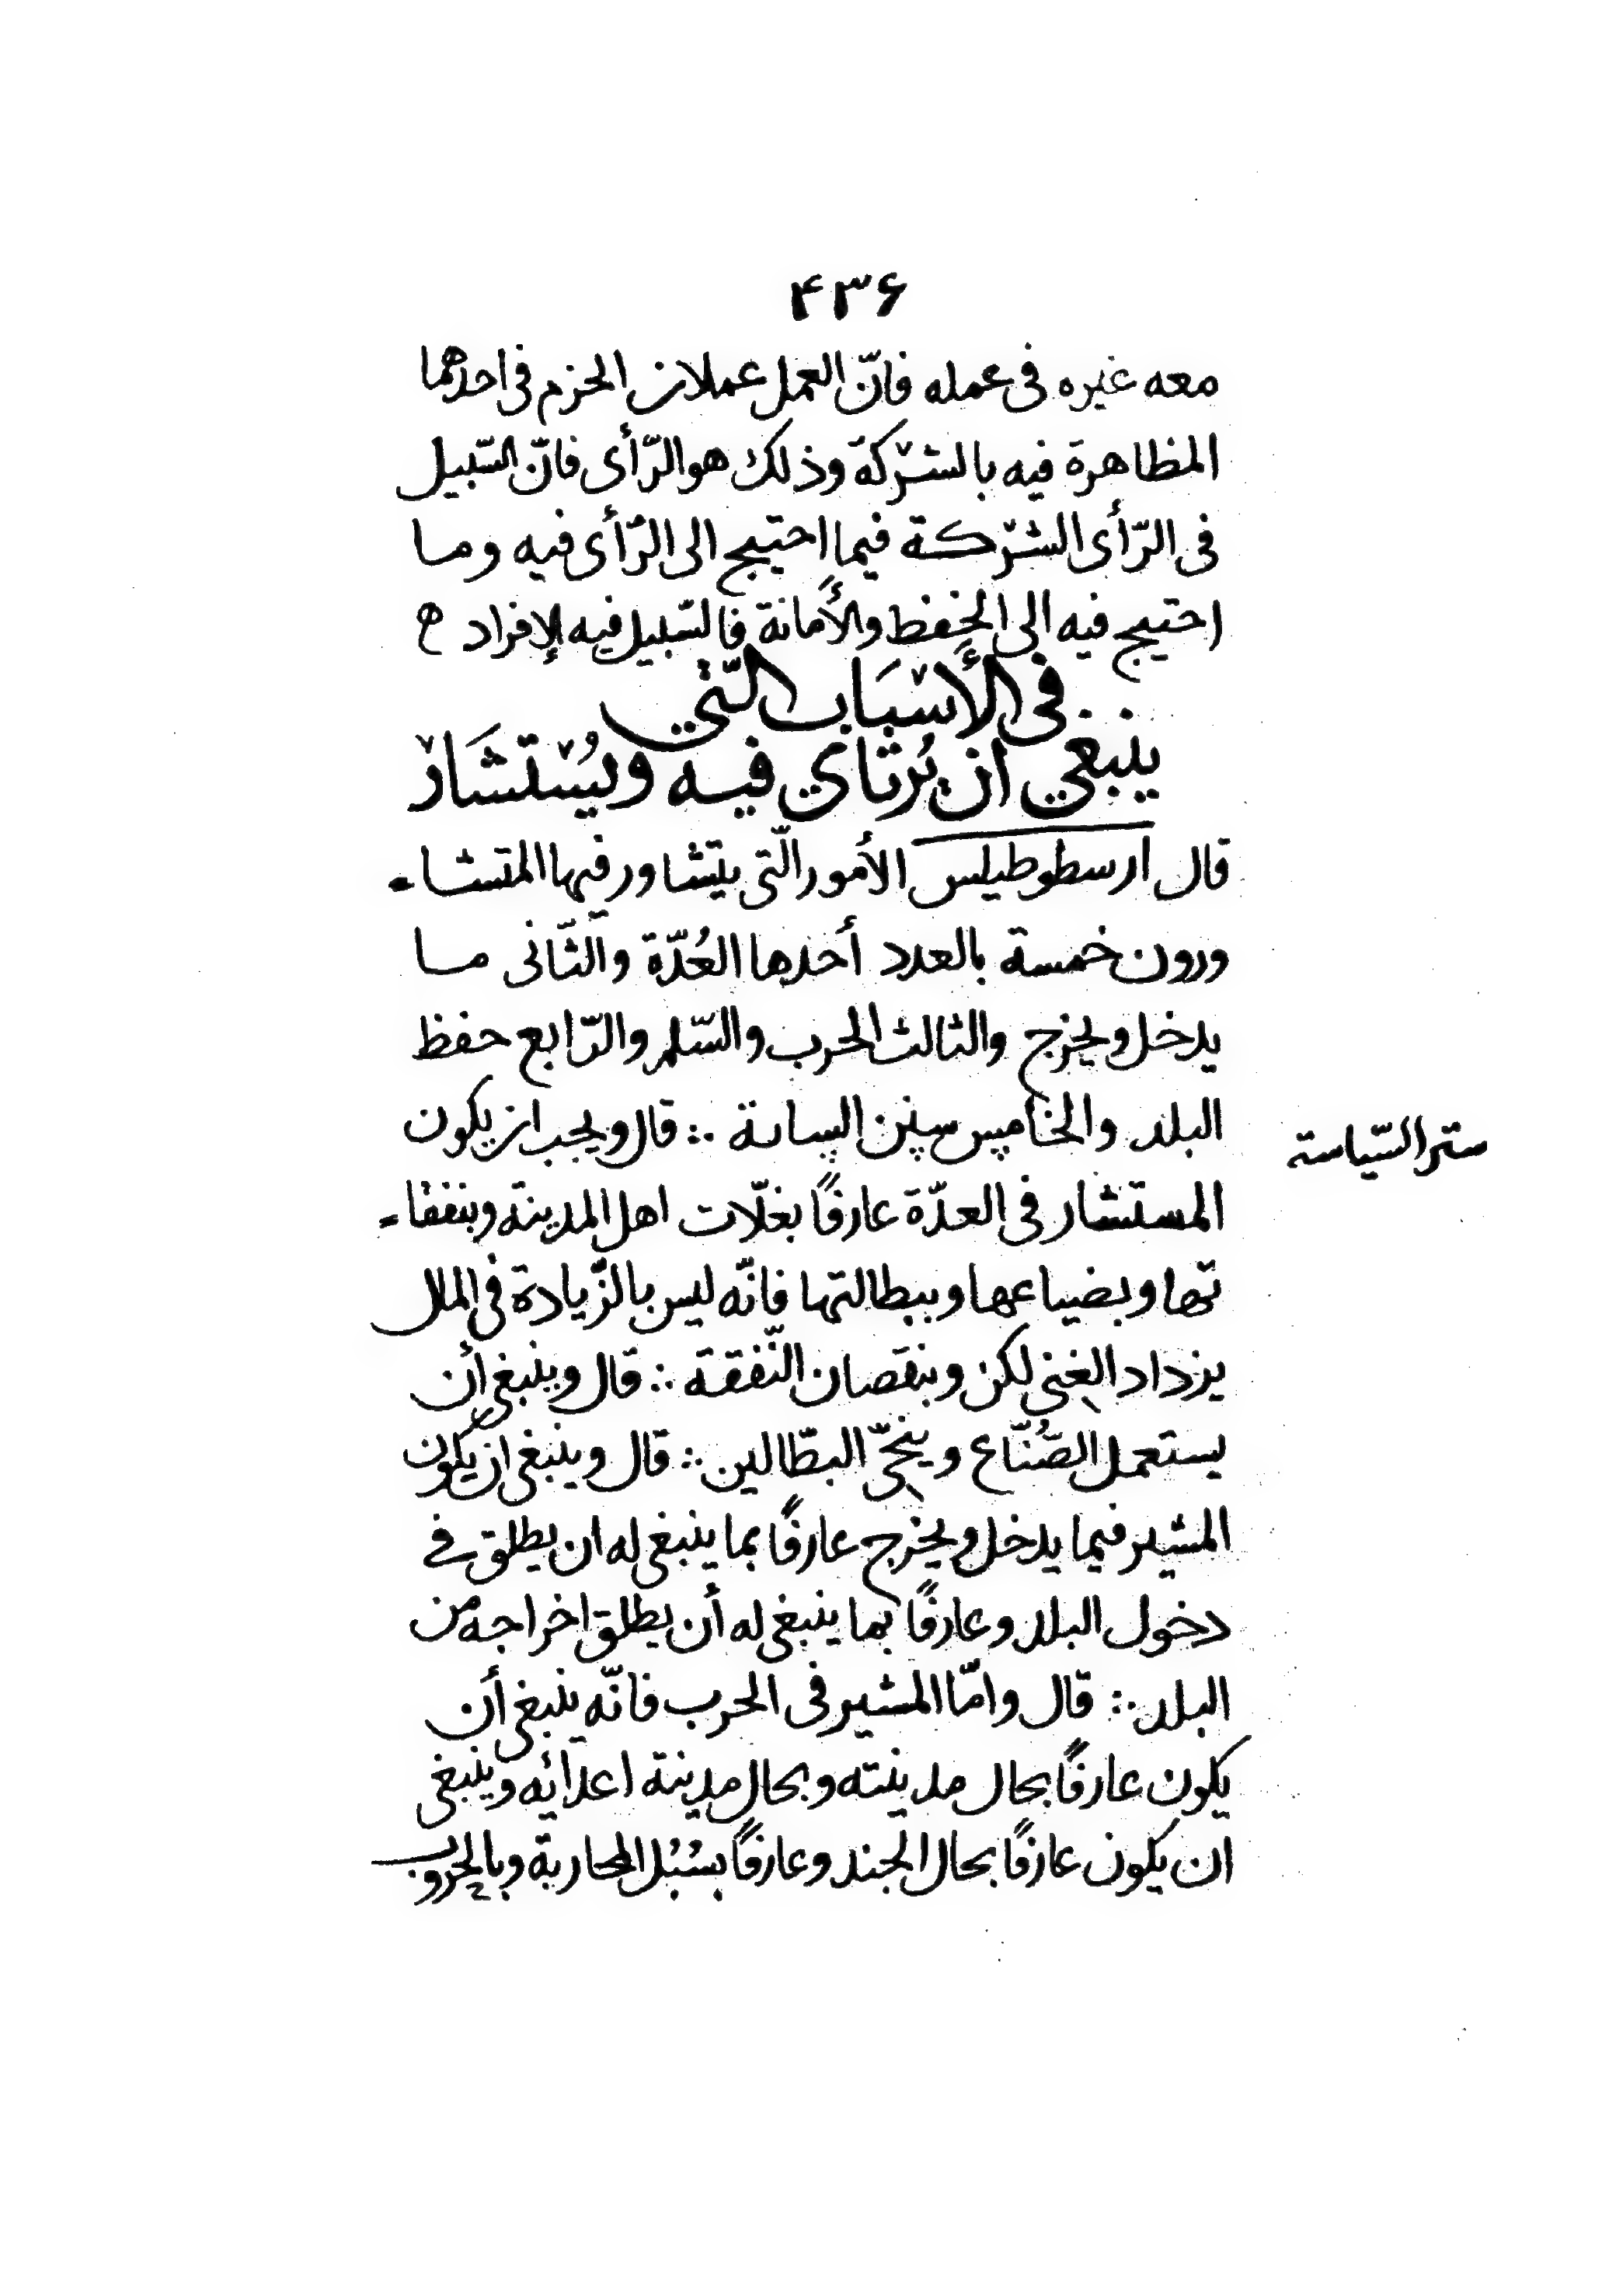 ۴۳۶
معه غيره فى عمله فانّ العمل عملان الحزم فى احدهما
المظاهرة فيه بالشرْكة وذلك هو الرّأى فانّ السّبيل
فى الرّأى الشرْكة فيما احتيج الى الرّأى فيه وما
احتيج فيه الى الحفظ والأمانة فالسّبيل فيه الإفراد ه
فى الأسْبَاب الّتي
ينبغي ان يُرتاي فيه ويُسْتشَارْ
قال ارسطوطيلس الأمور الّتى يتشاور فيها المتشا-
ورون خمسة بالعدد أحدها العُدّة والثّانى ما
يدخل ويخرج والثالث الحرب والسّلم والرّابع حفظ
البلد والخامس سنن السانة ∴ قال ويجب ان يكون
سنن السّياسة
المستشار فى العدّة عارفًا بغلّات اهل المدينة وبنفقا-
تها وبضياعها وببطالتها فانّه ليس بالزّيادة فى المال
يزداد الغنى لكن وبنقصان النّفقة ∴ قال وينبغى أن
يستعمل الصُّنّاع وينحّى البطّالين ∴ قال وينبغى ان يكون
المشير فيما يدخل ويخرج عارفًا بما ينبغى له ان يطلق في
دخول البلد وعارفًا بما ينبغى له أن يطلق اخراجه من
البلد ∴ قال وامّا المشير فى الحرب فانّه ينبغى أن
يكون عارفًا بحال مدينته وبحال مدينة اعدائه وينبغى
ان يكون عارفًا بحال الجند وعارفًا بسُبُل المحاربة وبالحروب